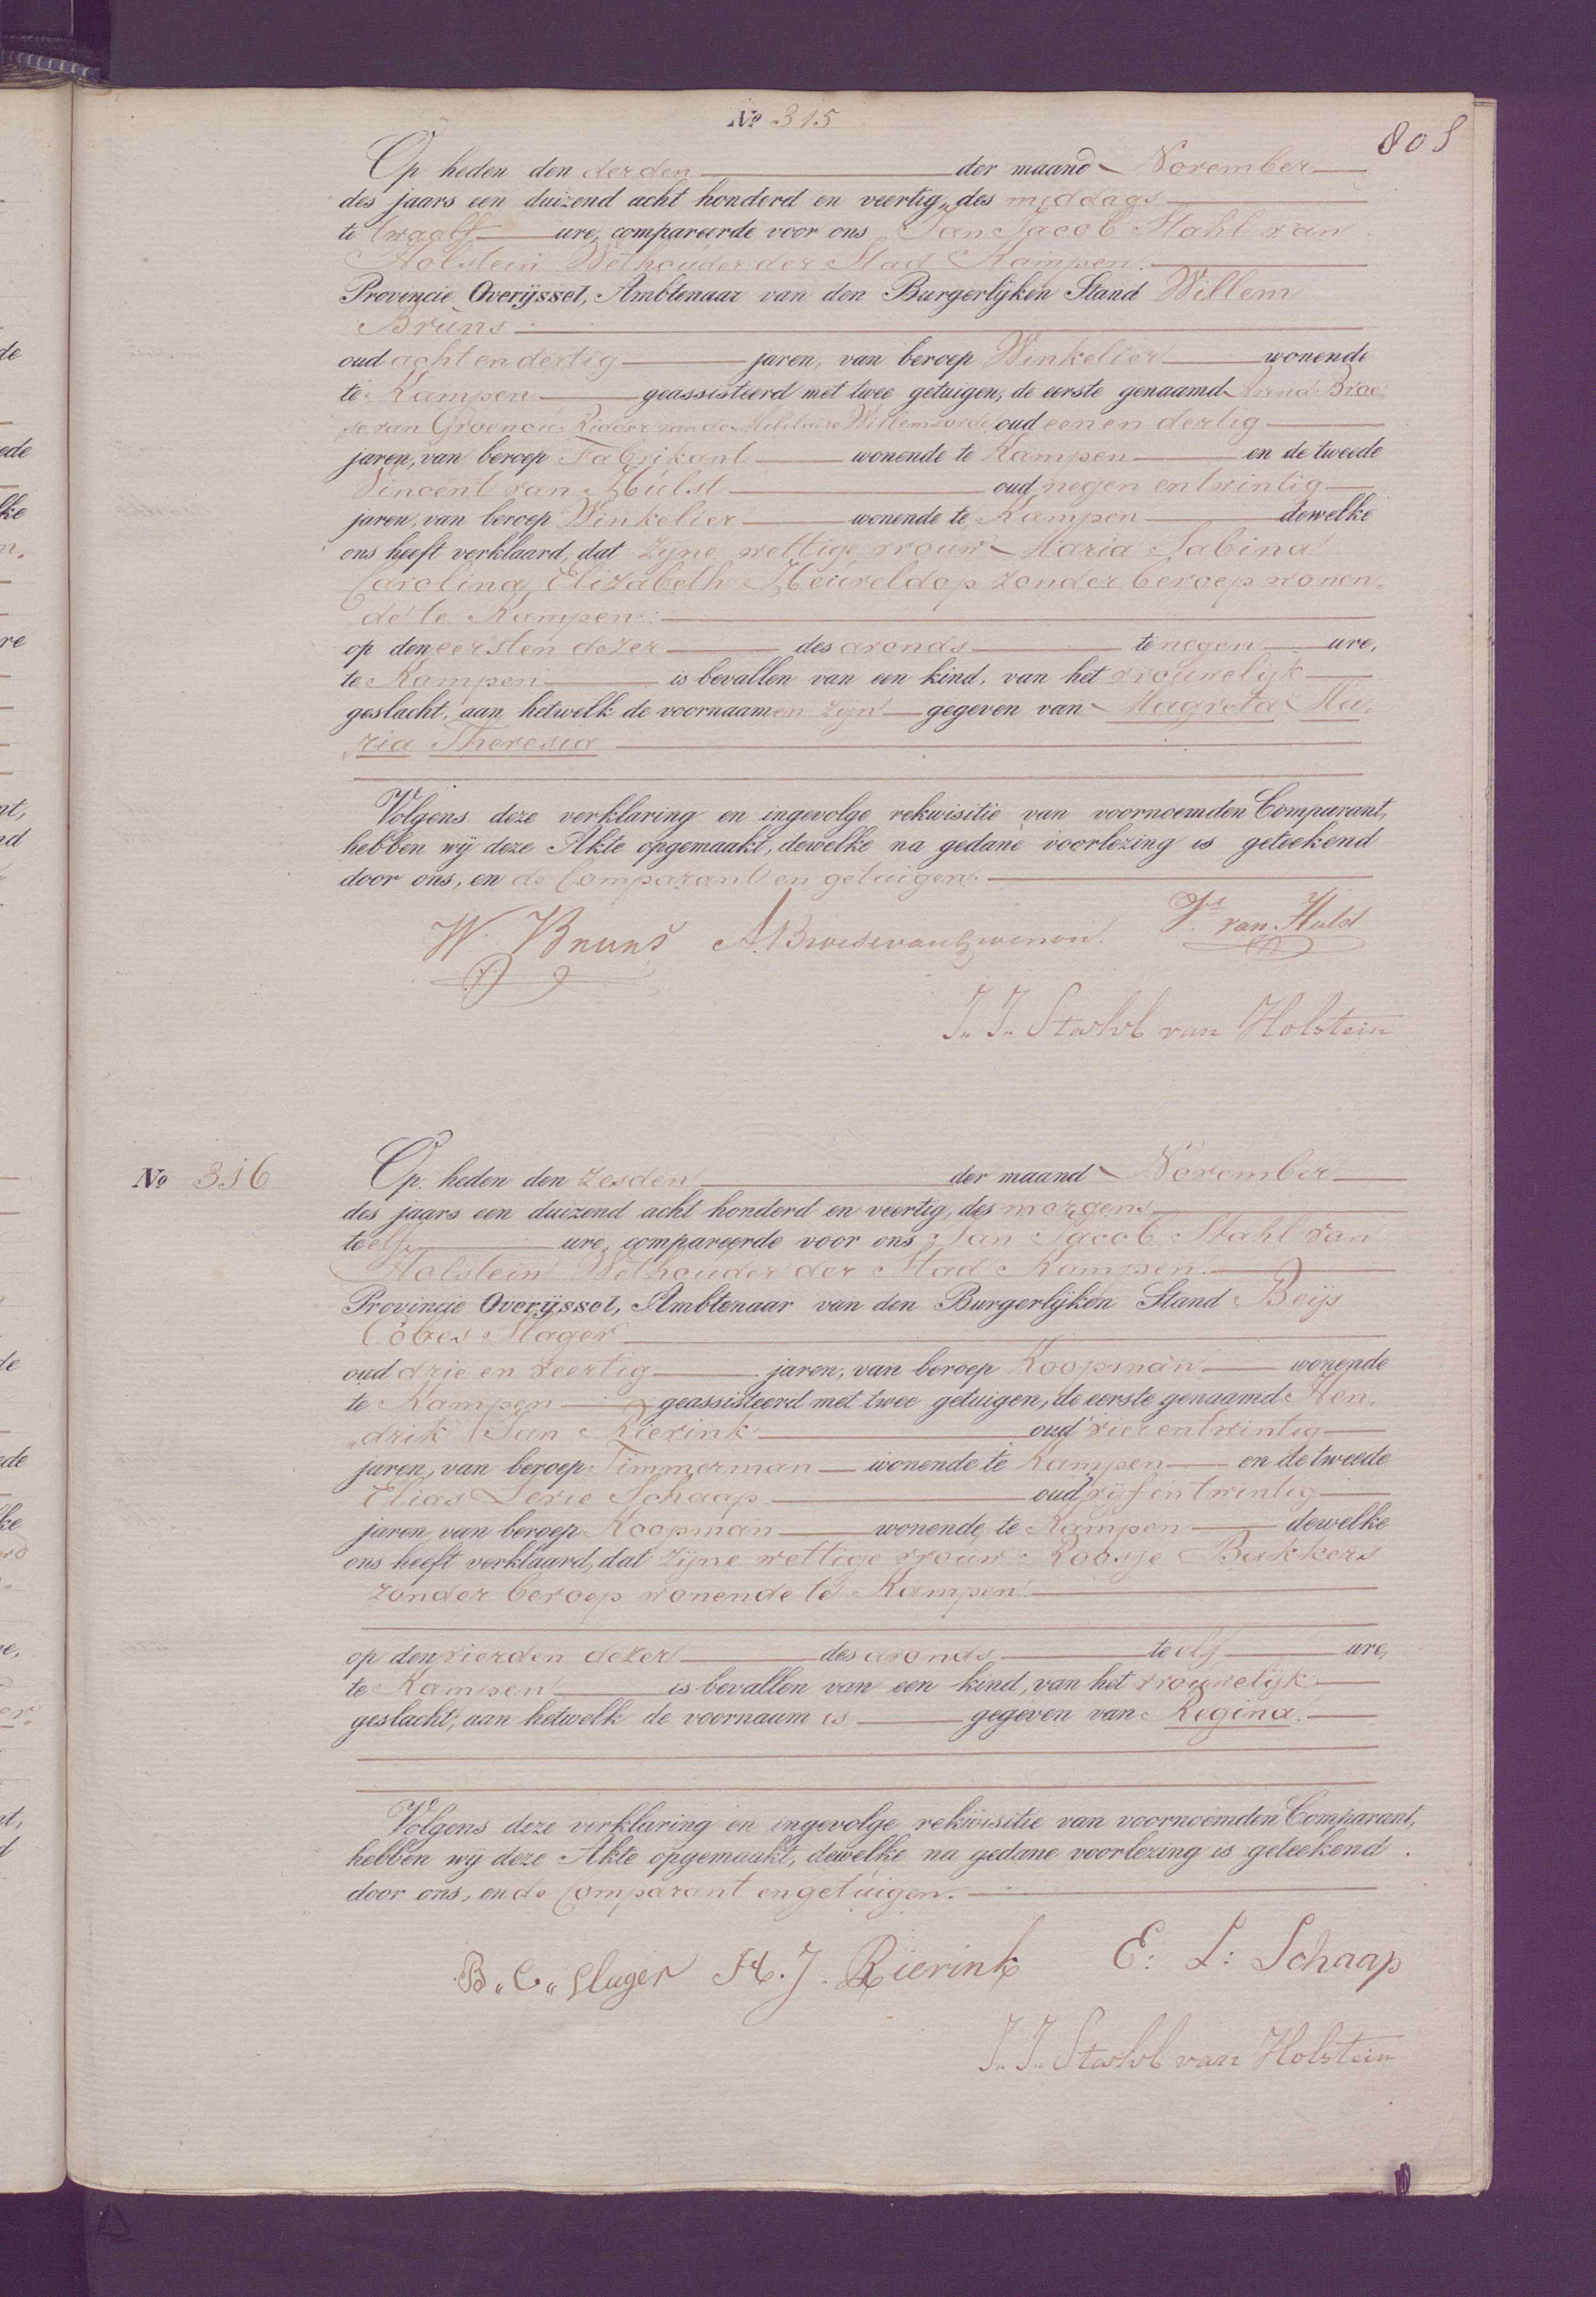 Nº 315
808
Op heden den derden der maand November
des jaars een duizend acht honderd en veertig, des middags
te twaalf ure, compareerde voor ons Jan Jacob Stahl van
Holstein Wethouder der Stad Kampen.
Provincie Overijssel, Ambtenaar van den Burgerlijken Stand Willem
Bruns
oud acht en dertig jaren, van beroep Winkelier wonende
te Kampen geassisteerd met twee getuigen, de eerste genaamd Arend Broe
se van Groenou Ridder van de Militaire Willemsorde oud een en dertig
jaren, van beroep Fabrikant wonende te Kampen en de tweede
Vincent van Hulst oud negen en twintig
jaren, van beroep Winkelier wonende te Kampen dewelke
ons heeft verklaard, dat zijne wettige vrouw Maria Sabina
Carolina Elizabeth Heuveldop zonder beroep wonen„
de te Kampen
op den eersten dezer des avonds te negen ure,
te Kampen is bevallen van een kind, van het vrouwelijk
geslacht, aan hetwelk de voornaamen zijn gegeven van Magreta Ma„
„ria Theresia
Volgens deze verklaring en ingevolge rekwisitie van voornoemden Comparant,
hebben wij deze Akte opgemaakt, dewelke na gedane voorlezing is geteekend
door ons, en de Comparant en getuigen.
W. Bruns A. Broese van Groenou. Vt. van Hulst
J. J. Stahl van Holstein
Nº 316
Op heden den zesden der maand November
des jaars een duizend acht honderd en veertig, des morgens
te elf ure, compareerde voor ons Jan Jacob Stahl van
Holstein Wethouder der Stad Kampen.
Provincie Overijssel, Ambtenaar van den Burgerlijken Stand Beijs
Cobes Slager
oud drie en veertig jaren, van beroep Koopman wonende
te Kampen geassisteerd met twee getuigen, de eerste genaamd Hen„
„drik Jan Rierink oud vier en twintig
jaren, van beroep Timmerman wonende te Kampen en de tweede
Elias Levie Schaap oud vijf en twintig
jaren, van beroep Koopman wonende te Kampen dewelke
ons heeft verklaard, dat zijne wettige vrouw Roosje Bakkers
zonder beroep wonende te Kampen
op den vierden dezer des avonds te elf ure,
te Kampen is bevallen van een kind, van het vrouwelijk
geslacht, aan hetwelk de voornaam is gegeven van Regina.
Volgens deze verklaring en ingevolge rekwisitie van voornoemden Comparant,
hebben wij deze Akte opgemaakt, dewelke na gedane voorlezing is geteekend
door ons, en de Comparant en getuigen.
B„ C„ Slager H. J. Rierink E: L: Schaap
J. J. Stahl van Holstein